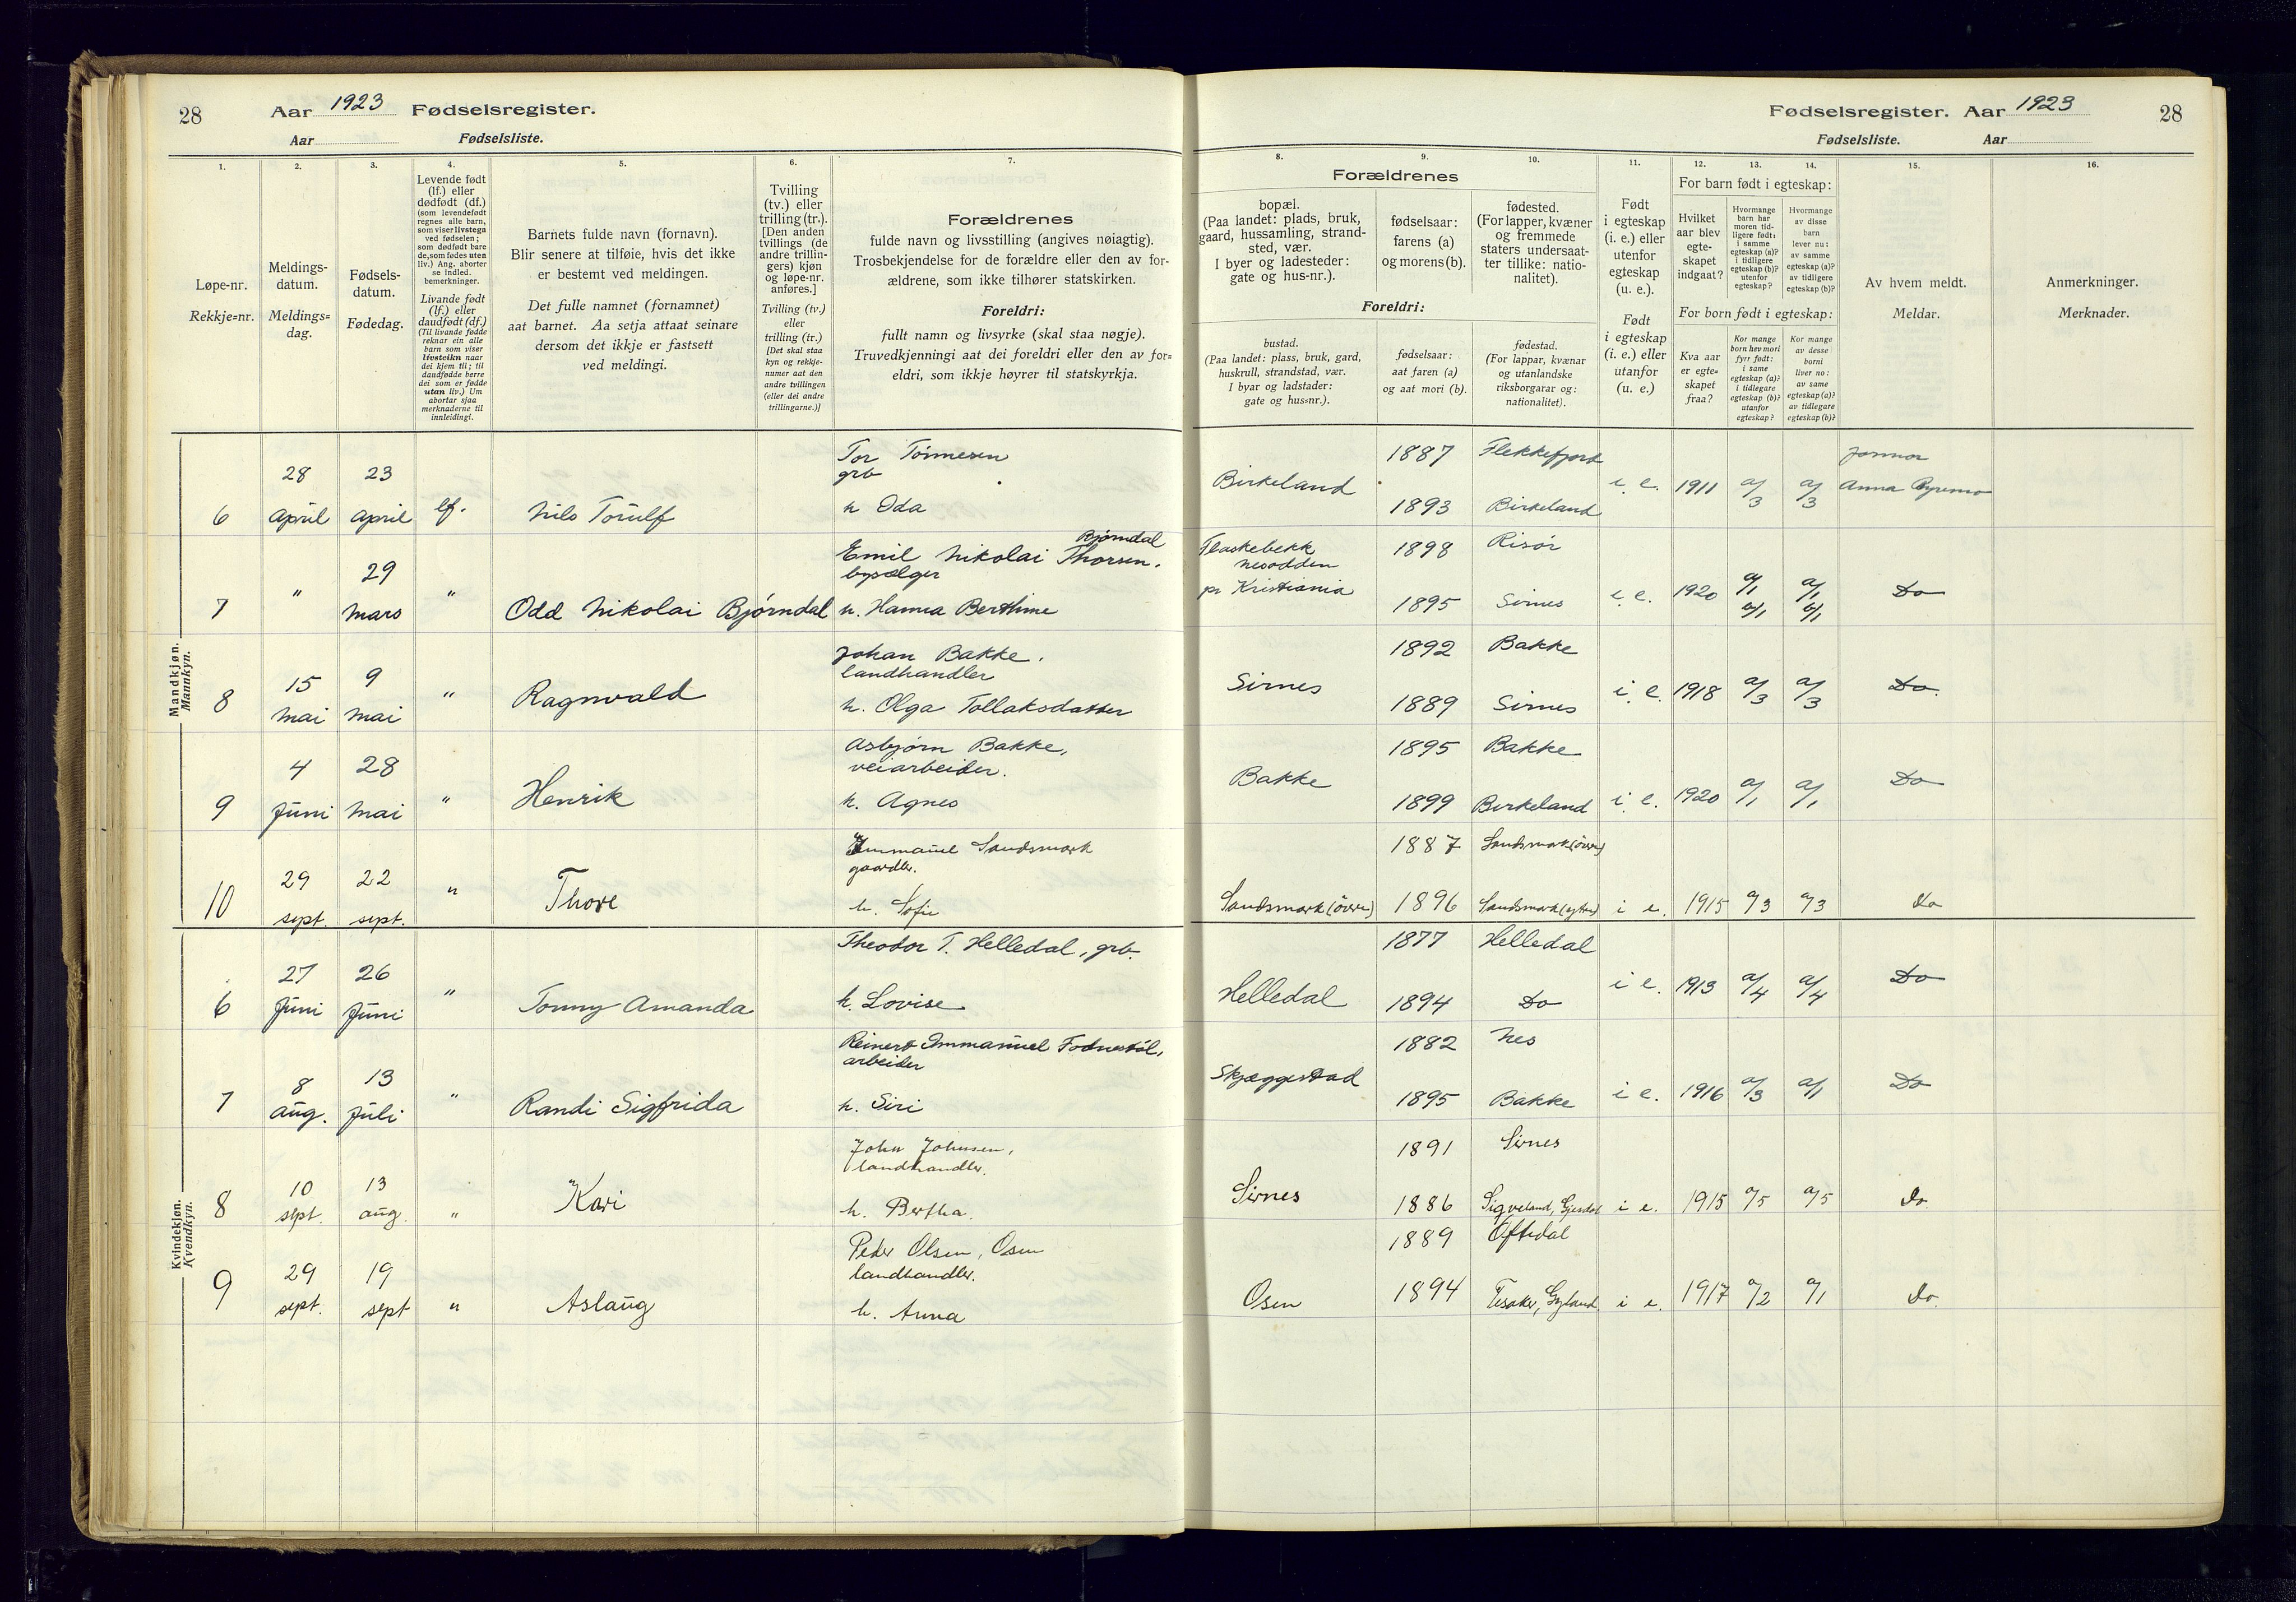 28 Aar 1923 Fødselsregister.
Aar Fødselsliste.
1. 2. 3. 4. 5. 6. 7.
Løpe-nr.
Rekkje=nr.
Meldings-
datum.
Meldings=
dag.
Fødsels-
datum.
Fødedag.
Levende født
(lf.) eller
dødfødt (df.)
(som levendefødt
regnes alle barn,
som viser livstegn
ved fødselen;
som dødfødt bare
de, som fødes uten
liv.) Ang. aborter
se indled.
bemerkninger.
Livande født
(lf.) eller
daudfødt (df.)
(Til livande fødde
reknar ein alle
barn som viser
livsteikn naar
dei kjem til; til
daudfødde berre
dei som er fødde
utan liv.) Um
abortar sjaa
merknaderne til
innleidingi.
Barnets fulde navn (fornavn).
Blir senere at tilføie, hvis det ikke
er bestemt ved meldingen.
Det fulle namnet (fornamnet)
aat barnet. Aa setja attaat seinare
dersom det ikkje er fastsett
ved meldingi.
Tvilling
(tv.) eller
trilling (tr.).
[Den anden
tvillings (de
andre trillin-
gers) kjøn
og løpe-nr.
anføres.]
Tvilling (tv.)
eller
trilling (tr.)
[Det skal staa
kyn og rekkje-
numer aat den
andre tvillingen
(eller dei andre
trillingarne.)]
Forældrenes
fulde navn og livsstilling (angives nøiagtig).
Trosbekjendelse for de forældre eller den av for-
ældrene, som ikke tilhører statskirken.
Foreldri:
fullt namn og livsyrke (skal staa nøgje).
Truvedkjenningi aat dei foreldri eller den av for=
eldri, som ikkje høyrer til statskyrkja.
Mandkjøn.
Mannkyn.
6 28 april 23 april lf. Nils Torulf
Tor Tönnesen
grb
h Oda
7 " 29 mars " Odd Nikolai Bjørndal
Bjørndal
Emil Nikolai Thorsen.
bysælger
h. Hanna Berthine
8 15 mai 9 mai " Ragnvald
Johan Bakke.
landhandler
h. Olga Tollaksdatter
9 4 Juni 28 mai " Henrik
Asbjørn Bakke,
veiarbeider.
h. Agnes
10 29 sept. 22 sept. " Thore
Immanuel Sandsmark
gaardbr.
h. Sofie
Kvindekjøn.
Kvendkyn.
6 27 Juni 26 Juni " Tonny Amanda
Theodor T. Helledal, grb.
h. Lovise
7 8 aug. 13 Juli " Randi Sigfrida
Reinert Immanuel Fodnestøl,
arbeider
h. Siri
8 10 sept. 13 aug. " Kari
John Johnsen,
landhandler.
h. Bertha.
9 29 sept. 19 sept " Aslaug
Peder Olsen, Osen
landhandler.
h. Anna
Fødselsregister. Aar 1923 28
Fødselsliste. Aar
8. 9. 10. 11. 12. 13. 14. 15. 16.
Forældrenes
bopæl.
(Paa landet: plads, bruk,
gaard, hussamling, strand-
sted, vær.
I byer og ladesteder:
gate og hus-nr.).
fødselsaar:
farens (a)
og morens (b).
fødested.
(For lapper, kvæner
og fremmede
staters undersaat-
ter tillike: natio-
nalitet).
Foreldri:
bustad.
(Paa landet: plass, bruk, gard,
huskrull, strandstad, vær.
I byar og ladstader:
gate og hus=nr.).
fødselsaar:
aat faren (a)
og aat mori (b).
fødestad.
(For lappar, kvænar
og utanlandske
riksborgarar og:
nationalitet).
Født
i egteskap
(i. e.) eller
utenfor
egteskap
(u. e.).
Født
i egteskap
(i. e.) eller
utanfor
egteskap
(u. e.)
For barn født i egteskap:
Hvilket
aar blev
egte-
skapet
indgaat?
Hvormange
barn har
moren tid-
ligere født:
i samme
egteskap (a)?
i tidligere
egteskap (b)?
utenfor
egteskap?
Hvormange
av disse
barn
lever nu:
av samme
egteskap (a)?
av tidligere
egteskap (b)?
For born født i egteskap:
Kva aar
er egte=
skapet
fraa?
Kor mange
born hev mori
fyrr født:
i same
egteskap (a)?
i tidlegare
egteskap (b)?
utanfor
egteskap?
Kor mange
av desse
borni
liver no:
av same
egteskap (a)?
av tidlegare
egteskap (b)?
Av hvem meldt.
Meldar.
Anmerkninger.
Merknader.
Birkeland 1887 Flekkefjord
1893 Birkeland i. e. 1911 a/3 a/3 Jormor
Anna
Flaskebekk
Nesodden
pr Kristiania
1898 Risør
1895 Sirnes i. e. 1920 a/1 b/1 a/1 b/1 Do
1892 Bakke
Sirnes 1889 Sirnes i. e. 1918 a/3 a/3 Do.
1895 Bakke
Bakke 1899 Birkeland i. e. 1920 a/1 a/1 Do
1887 Sandsmark (övre)
Sandsmark (övre) 1896 Sandsmark (ytre) i e. 1915 a/3 a/3 Do
1877 Helledal
Helledal 1894 Do i e. 1913 a/4 a/4 Do
1882 Nes
Skjeggestad 1895 Bakke i e. 1916 a/3 a/1 Do
1891 Sirnes
Sirnes 1886 Sigveland, Gjesdal i e. 1915 a/5 a/5 Do.
1889 Oftedal
Osen 1894 Tesaker, Gyland i e. 1917 a/2 a/1 Do.